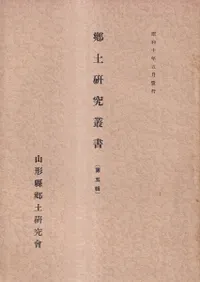 昭和十年三月發行
鄕土硏究叢書
(第五輯)
山形縣鄕土硏究會